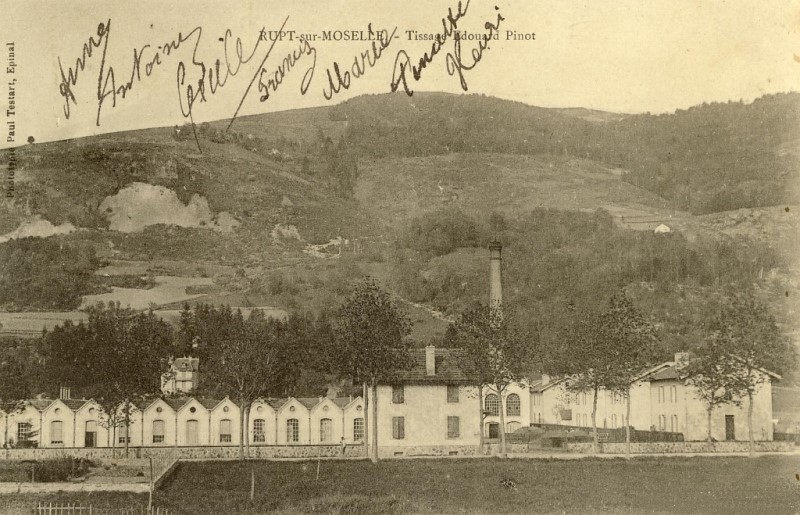 RUPT-sur-MOSELLE - Tissage Edouard Pinot
Antoine
Cécile
Francis
Marie
Henri
Phototypie Paul Testart, Epinal